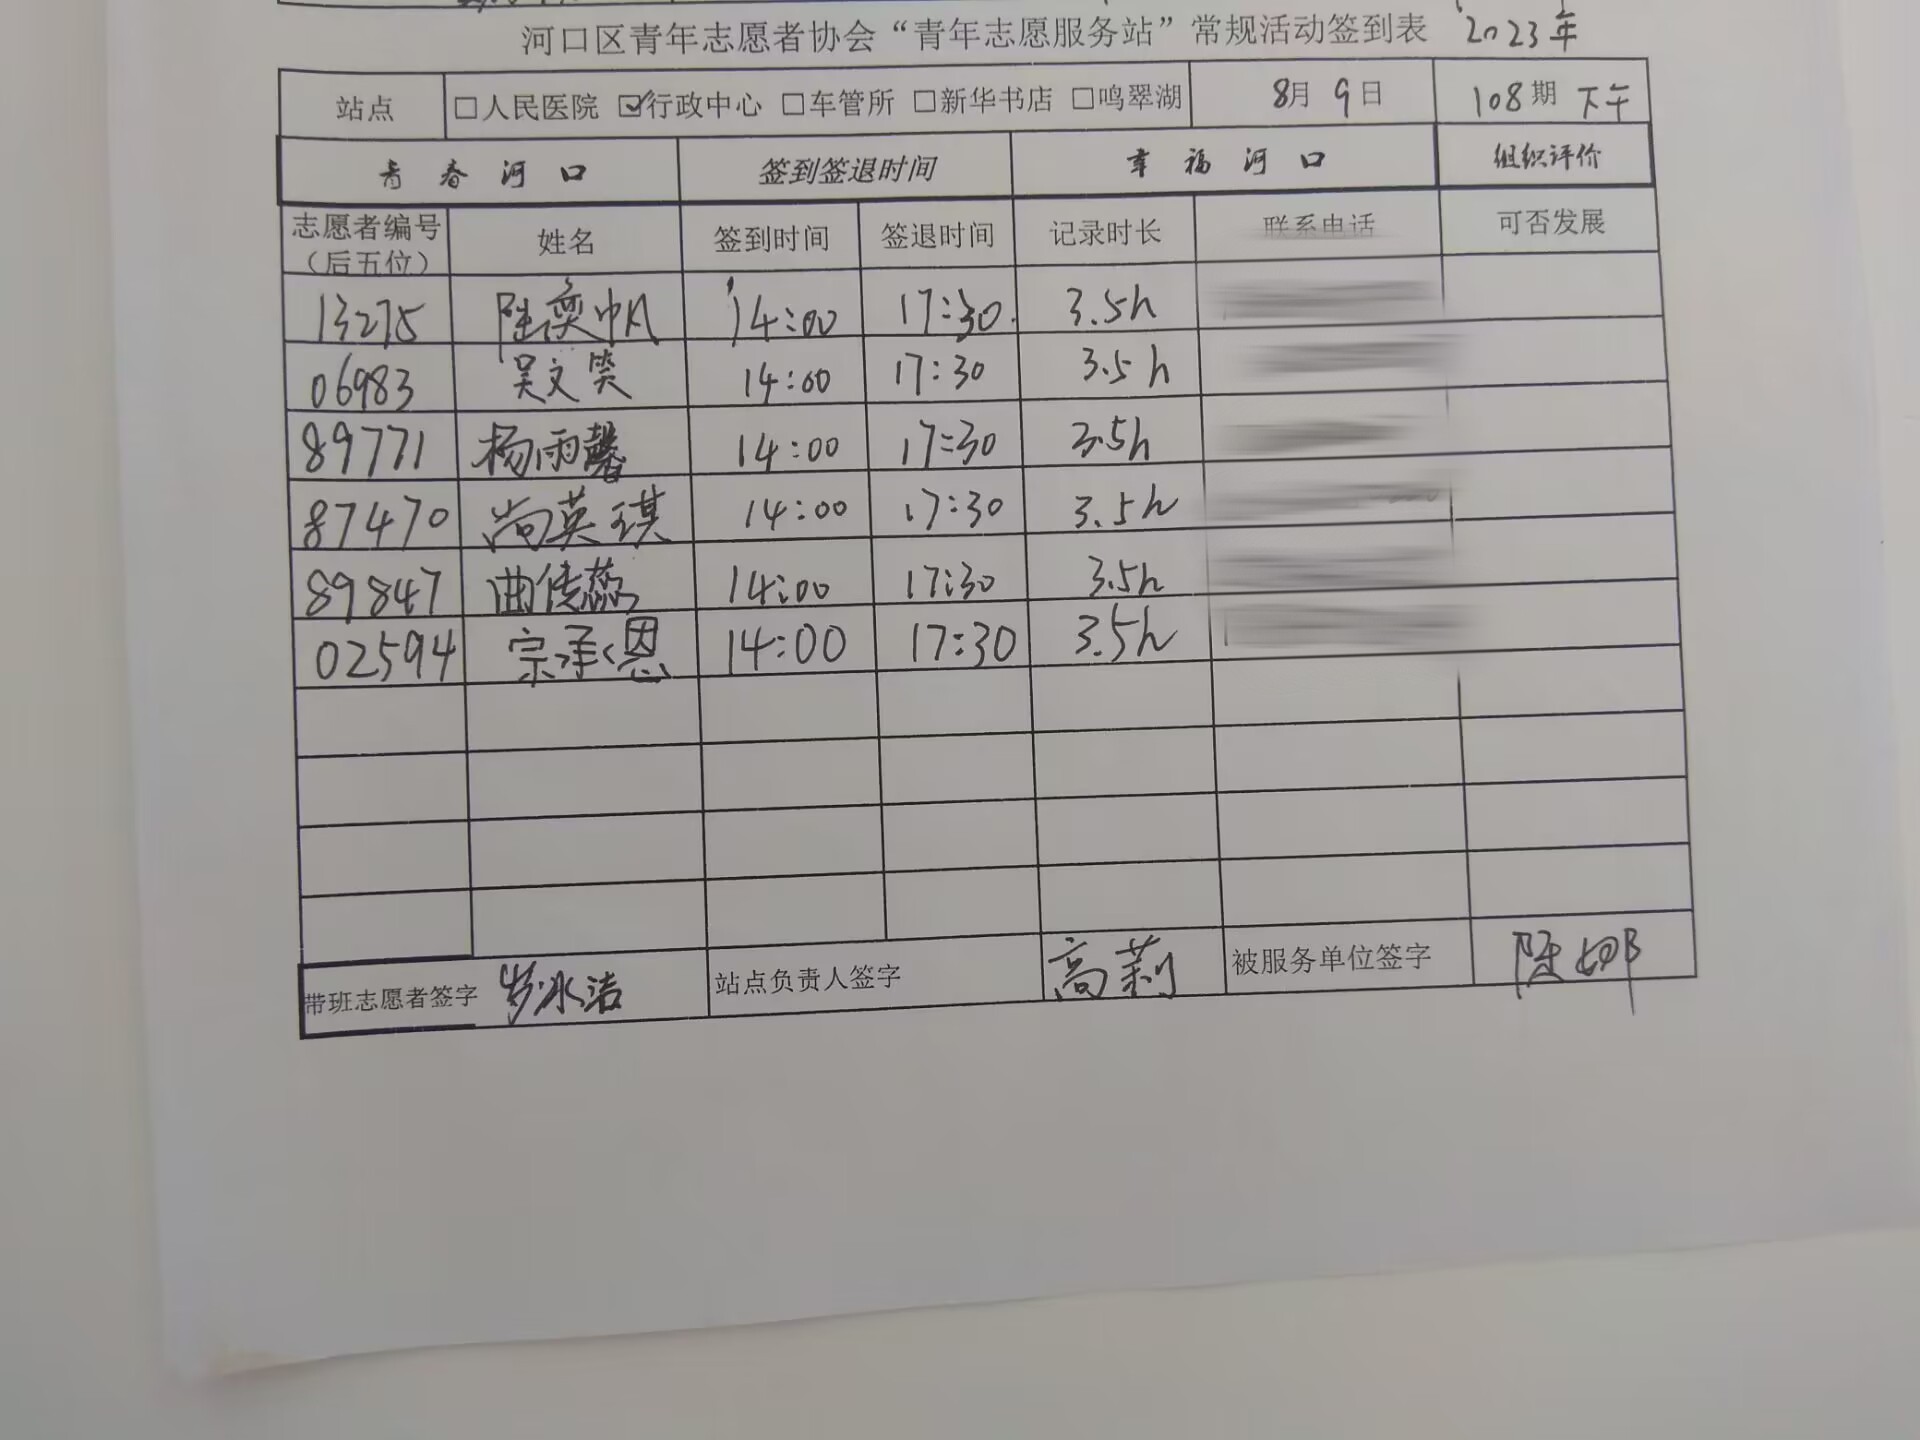 河口区青年志愿者协会“青年志愿服务站”常规活动签到表 2023年
站点 □人民医院 ☑行政中心 □车管所 □新华书店 □鸣翠湖 8月9日 108期 下午
青春河口 签到签退时间 幸福河口 组织评价
志愿者编号（后五位） 姓名 签到时间 签退时间 记录时长 联系电话 可否发展
13275 陆奕帆 14:00 17:30 3.5h
06983 吴文笑 14:00 17:30 3.5h
89771 杨雨馨 14:00 17:30 3.5h
87470 尚英琪 14:00 17:30 3.5h
89847 曲传蕊 14:00 17:30 3.5h
02594 宗承恩 14:00 17:30 3.5h
带班志愿者签字 岁冰洁 站点负责人签字 高莉 被服务单位签字 陈娜